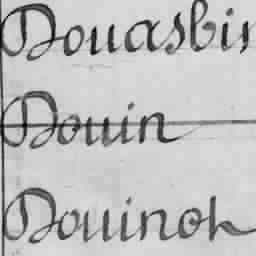 Douasbin
Douin
Douinok